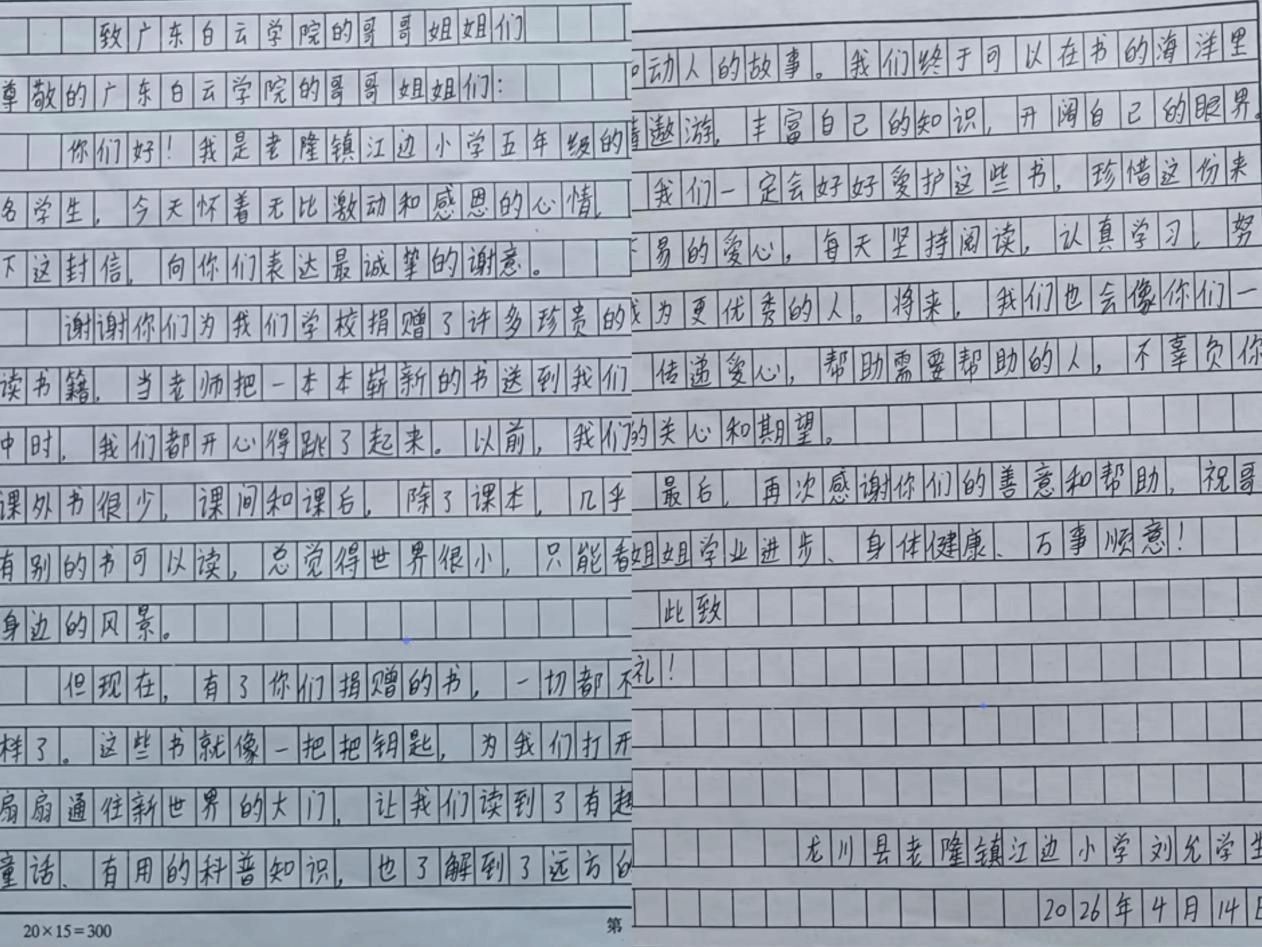 致广东白云学院的哥哥姐姐们
尊敬的广东白云学院的哥哥姐姐们：
你们好！我是老隆镇江边小学五年级的
名学生，今天怀着无比激动和感恩的心情，
下这封信，向你们表达最诚挚的谢意。
谢谢你们为我们学校捐赠了许多珍贵的
读书籍。当老师把一本本崭新的书送到我们
中时，我们都开心得跳了起来。以前，我们
课外书很少，课间和课后，除了课本，几乎
有别的书可以读，总觉得世界很小，只能看
身边的风景。
但现在，有了你们捐赠的书，一切都不
样了。这些书就像一把把钥匙，为我们打开
扇扇通往新世界的大门，让我们读到了有趣
童话、有用的科普知识，也了解到了远方的
20×15=300
第
动人的故事。我们终于可以在书的海洋里
遨游，丰富自己的知识，开阔自己的眼界。
我们一定会好好爱护这些书，珍惜这份来
易的爱心，每天坚持阅读，认真学习，努
成为更优秀的人。将来，我们也会像你们一
传递爱心，帮助需要帮助的人，不辜负你
的关心和期望。
最后，再次感谢你们的善意和帮助，祝哥
姐姐学业进步、身体健康、万事顺意！
此致
礼！
龙川县老隆镇江边小学刘允学生
2026年4月14日